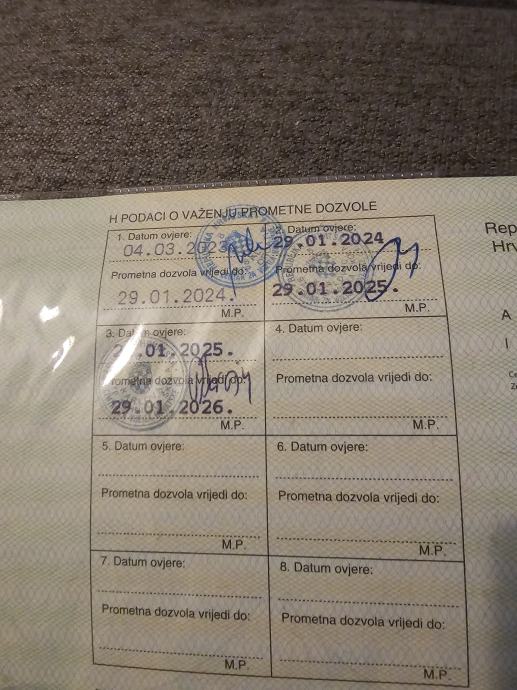 H PODACI O VAŽENJU PROMETNE DOZVOLE
1. Datum ovjere:
04.03.2023.
Prometna dozvola vrijedi do:
29.01.2024.
M.P.
2. Datum ovjere:
29.01.2024
Prometna dozvola vrijedi do:
29.01.2025.
M.P.
3. Datum ovjere:
.01.2025.
Prometna dozvola vrijedi do:
29.01.2026.
M.P.
4. Datum ovjere:
Prometna dozvola vrijedi do:
M.P.
5. Datum ovjere:
Prometna dozvola vrijedi do:
M.P.
6. Datum ovjere:
Prometna dozvola vrijedi do:
M.P.
7. Datum ovjere:
Prometna dozvola vrijedi do:
M.P.
8. Datum ovjere:
Prometna dozvola vrijedi do:
M.P.
Rep
Hrv
A
I